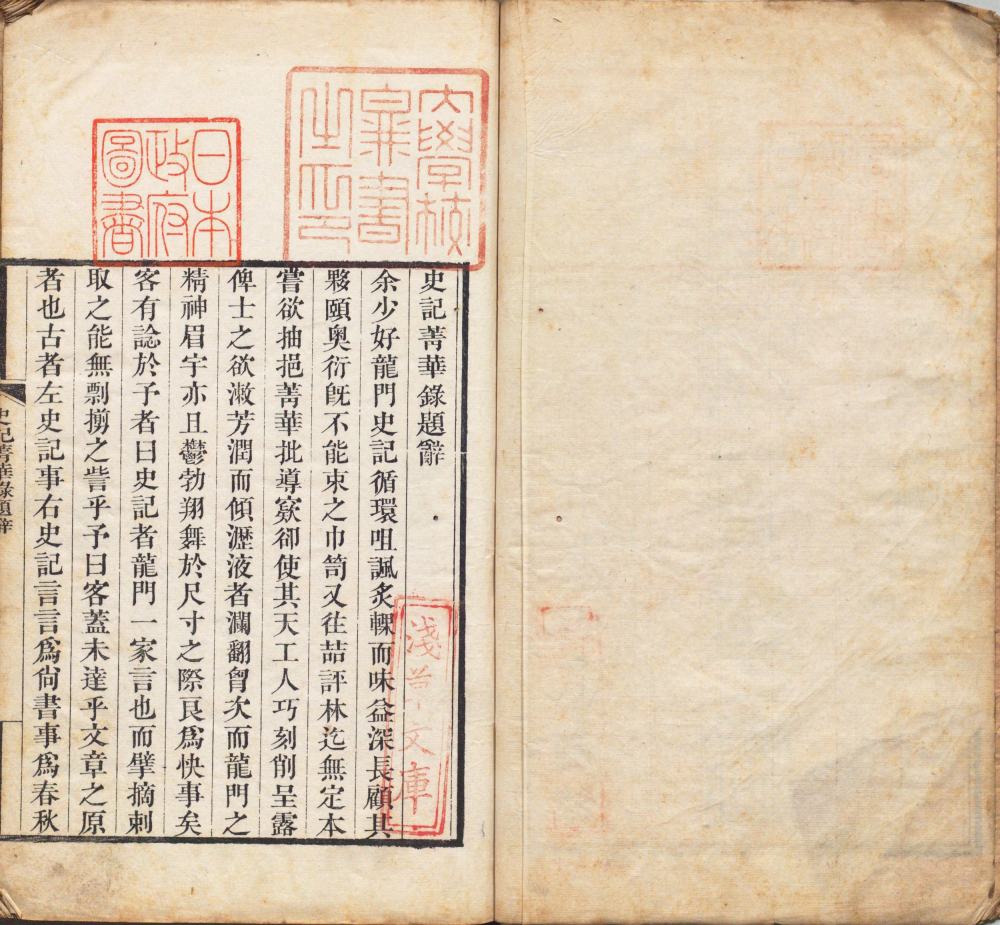 史記菁華錄題辭
余少好龍門史記循環咀諷炙輠而味益深長顧其
夥頤奧衍旣不能束之巾笥又往喆評林迄無定本
嘗欲抽挹菁華批導窽卻使其天工人巧刻削呈露
俾士之欲漱芳潤而傾瀝液者瀾翻胷次而龍門之
精神眉宇亦且鬱勃翔舞於尺寸之際良爲快事矣
客有諗於予者曰史記者龍門一家言也而擘摘刺
取之能無剽搠之訾乎予曰客蓋未達乎文章之原
者也古者左史記事右史記言言爲尙書事爲春秋
史記菁華錄題辭
大學校
寀書
之印
日本
政府
圖書
淺草文庫